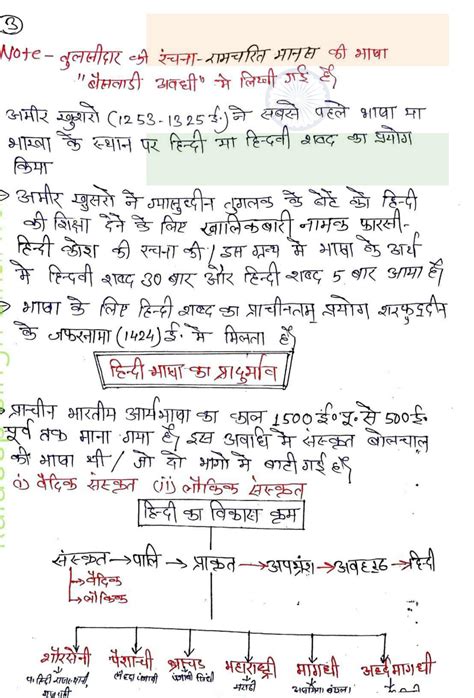 3
Note - तुलसीदास की रचना - रामचरित मानस की भाषा
"बैसवाडी अवधी" में लिखी गई है
अमीर खुसरो (1253-1325 ई.) ने सबसे पहले भाषा या
भाखा के स्थान पर हिन्दी या हिन्दवी शब्द का प्रयोग
किया
→ अमीर खुसरो ने ग्यासुद्दीन तुगलक के बेटे को हिन्दी
की शिक्षा देने के लिए खालिकबारी नामक फारसी-
हिन्दी कोश की रचना की / इस ग्रन्थ में भाषा के अर्थ
में हिन्दवी शब्द 30 बार और हिन्दी शब्द 5 बार आया है
→ भाषा के लिए हिन्दी शब्द का प्राचीनतम् प्रयोग शरफुद्दीन
के जफरनामा (1424) ई. में मिलता है
हिन्दी भाषा का प्रादुर्भाव
प्राचीन भारतीय आर्यभाषा का काल 1500 ई० पू. से 500 ई.
पूर्व तक माना गया है, इस अवधि में संस्कृत बोलचाल
की भाषा थी / जो दो भागों में बाटी गई है
(i) वैदिक संस्कृत (ii) लौकिक संस्कृत
हिन्दी का विकास क्रम
संस्कृत → पालि → प्राकृत → अपभ्रंश → अवहट्ठ → हिन्दी
→ वैदिक
→ लौकिक
शौरसेनी पैशाची ब्राचड महाराष्ट्री मागधी अर्द्धमागधी
लहंदा पंजाबी पंजाबी सिंधी मराठी